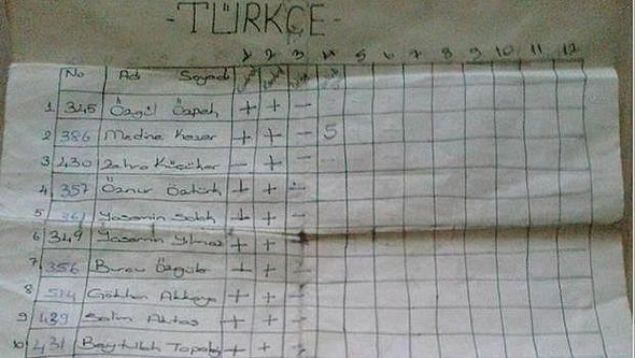 -TÜRKÇE-
1 2 3 4 5 6 7 8 9 10 11 12
No Adı Soyadı
1 345 Özgül Özpek + + -
2 386 Medine Keser + + - 5
3 430 Zehra - + -
4 357 Öznur Öztürk + + -
5 Yasemin + + -
6 349 Yasemin Yılmaz + + -
7 356 Burcu + + -
8 514 Gökhan Akkaya + + -
9 439 Selim Aktaş + + -
10 431 Beytullah + + -